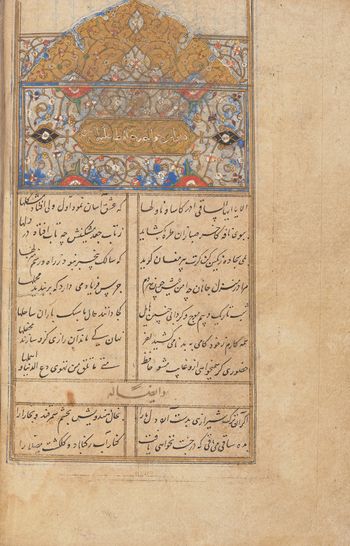 الا یا ایها الساقی ادر کاسا و ناولها که عشق آسان نمود اول ولی افتاد مشکلها
ببوی نافه کاخر صبا زان طره بکشاید ز تاب جعد مشکینش چه تاب افتاد در دلها
بمی سجاده رنگین کن گرت پیر مغان گوید که سالک بیخبر نبود ز راه و رسم منزلها
مرا در منزل جانان چه امن عیش چون هردم جرس فریاد می دارد که بربندید محملها
شب تاریک و بیم موج و گردابی چنین هایل کجا دانند حال ما سبک باران ساحلها
همه کارم ز خود کامی به بدنامی کشید آخر نهان کی ماند آن رازی کزو سازند محفلها
حضوری گر همی خواهی ازو غایب مشو حافظ متی ما تلق من تهوی دع الدنیا و اهملها
و ایضا له
اگر آن ترک شیرازی بدست آرد دل ما را بخال هندویش بخشم سمرقند و بخارا را
بده ساقی می باقی که در جنت نخواهی یافت کنار آب رکناباد و گلگشت مصلا را